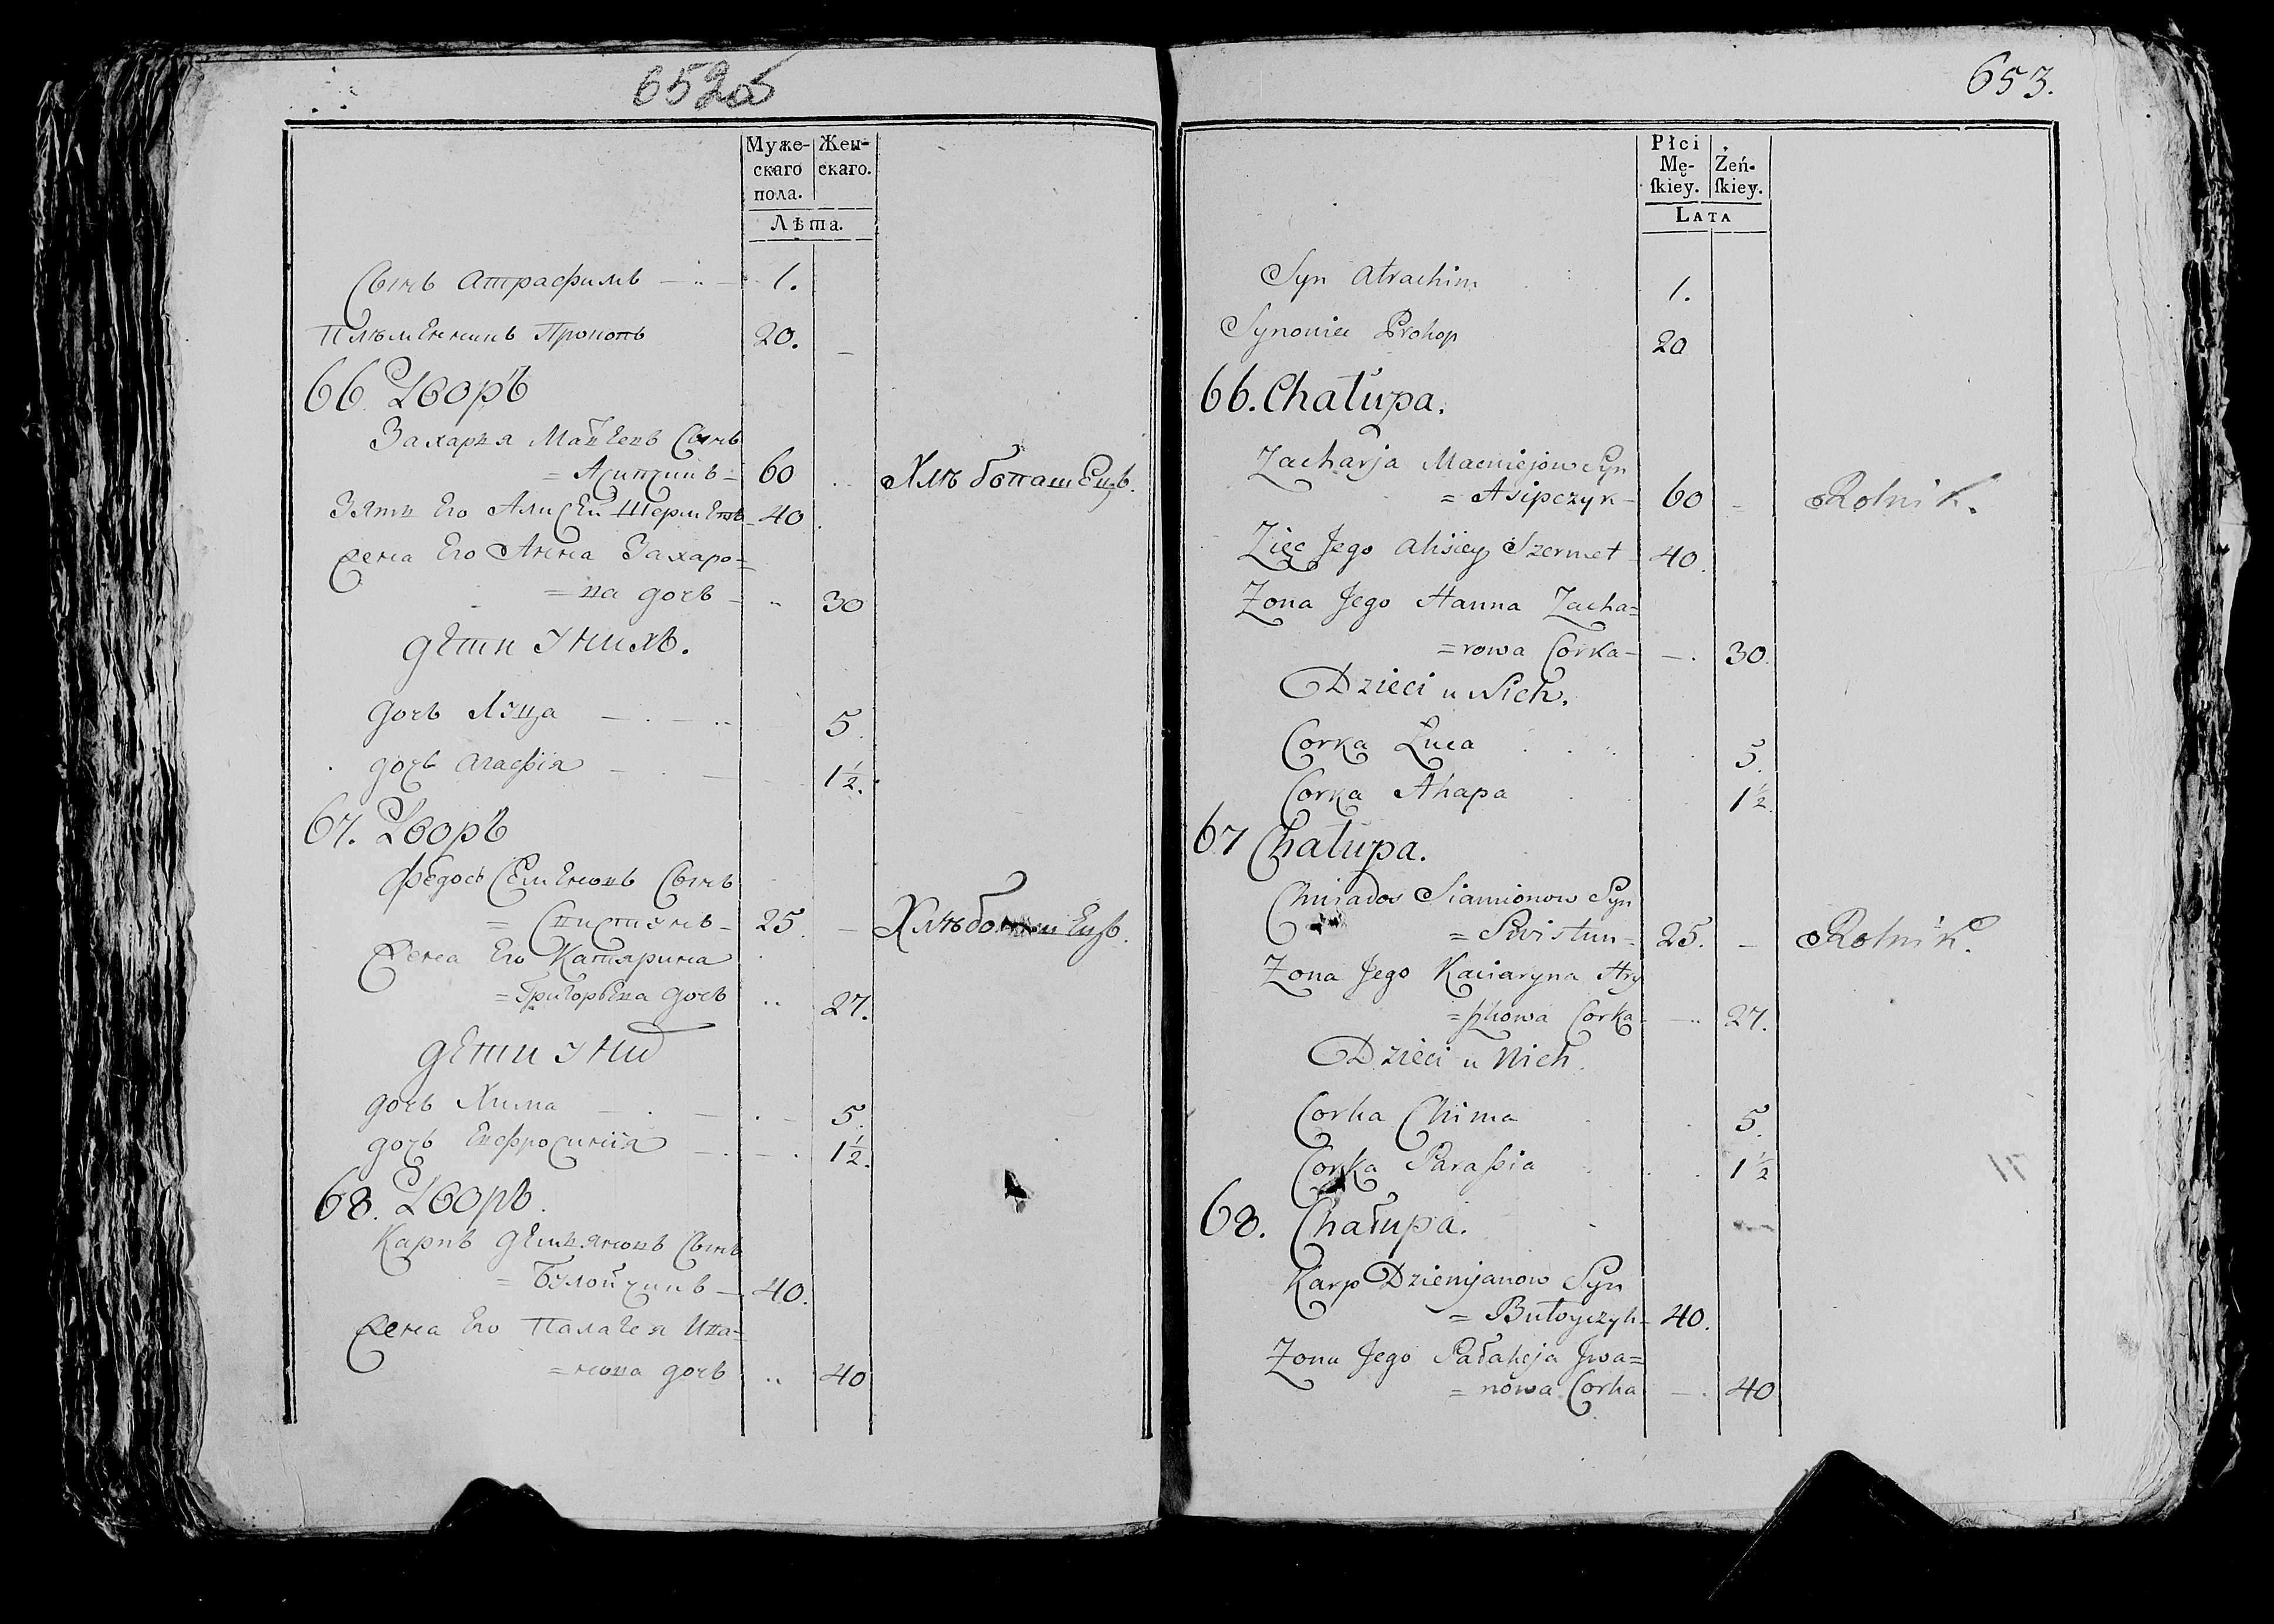 652об
Муже-
скаго
пола.
Жен-
скаго.
Лѣта.
Сынъ Атрафимъ 1.
Племенникъ Прокопъ 20.
66. Дворъ
Захарья Матвеевъ Сынъ
= Асипчикъ = 60 Хлѣбопашецъ.
Зять Его Алисей Шерметъ 40
Жена Его Анна Захаро=
= ва дочь 30
дети у нихъ.
дочь Луца 5.
дочь Агафія 1½.
67. Дворъ
Федосъ Семеновъ Сынъ
= Свистунъ 25. Хлѣбопашецъ.
Жена Его Катярина
= Григорьева дочь 27.
дети у них
дочь Хима 5.
дочь Ефросинія 1½.
68. Дворъ.
Карпъ Демьяновъ Сынъ
= Булойчикъ 40.
Жена Его Палагея Ива=
= нова дочь 40
653.
Płci
Mę-
ſkiey.
Żeń-
ſkiey.
Lata
Syn Atrachim 1.
Synowiec Prohop 20
66. Chałupa.
Zacharja Maciejow Syn
= Asipczyk 60 Rolnik.
Zięc Jego Alisiey Szermet 40.
Zona Jego Hanna Zacha=
= rowa Corka 30.
Dzieci u Nich.
Corka Łuca 5.
Corka Ahapa 1½.
67 Chałupa.
Chwiados Siamionow Syn
= Swistun = 25. Rolnik.
Zona Jego Kaciaryna Hry
= howa Corka 27.
Dzieci u Nich.
Corka Chima 5.
Corka Paraſia 1½
68. Chałupa.
Karp Dziemjanow Syn
= Bułoyczyk 40.
Zona Jego Pałaheja Jwa=
= nowa Corka 40